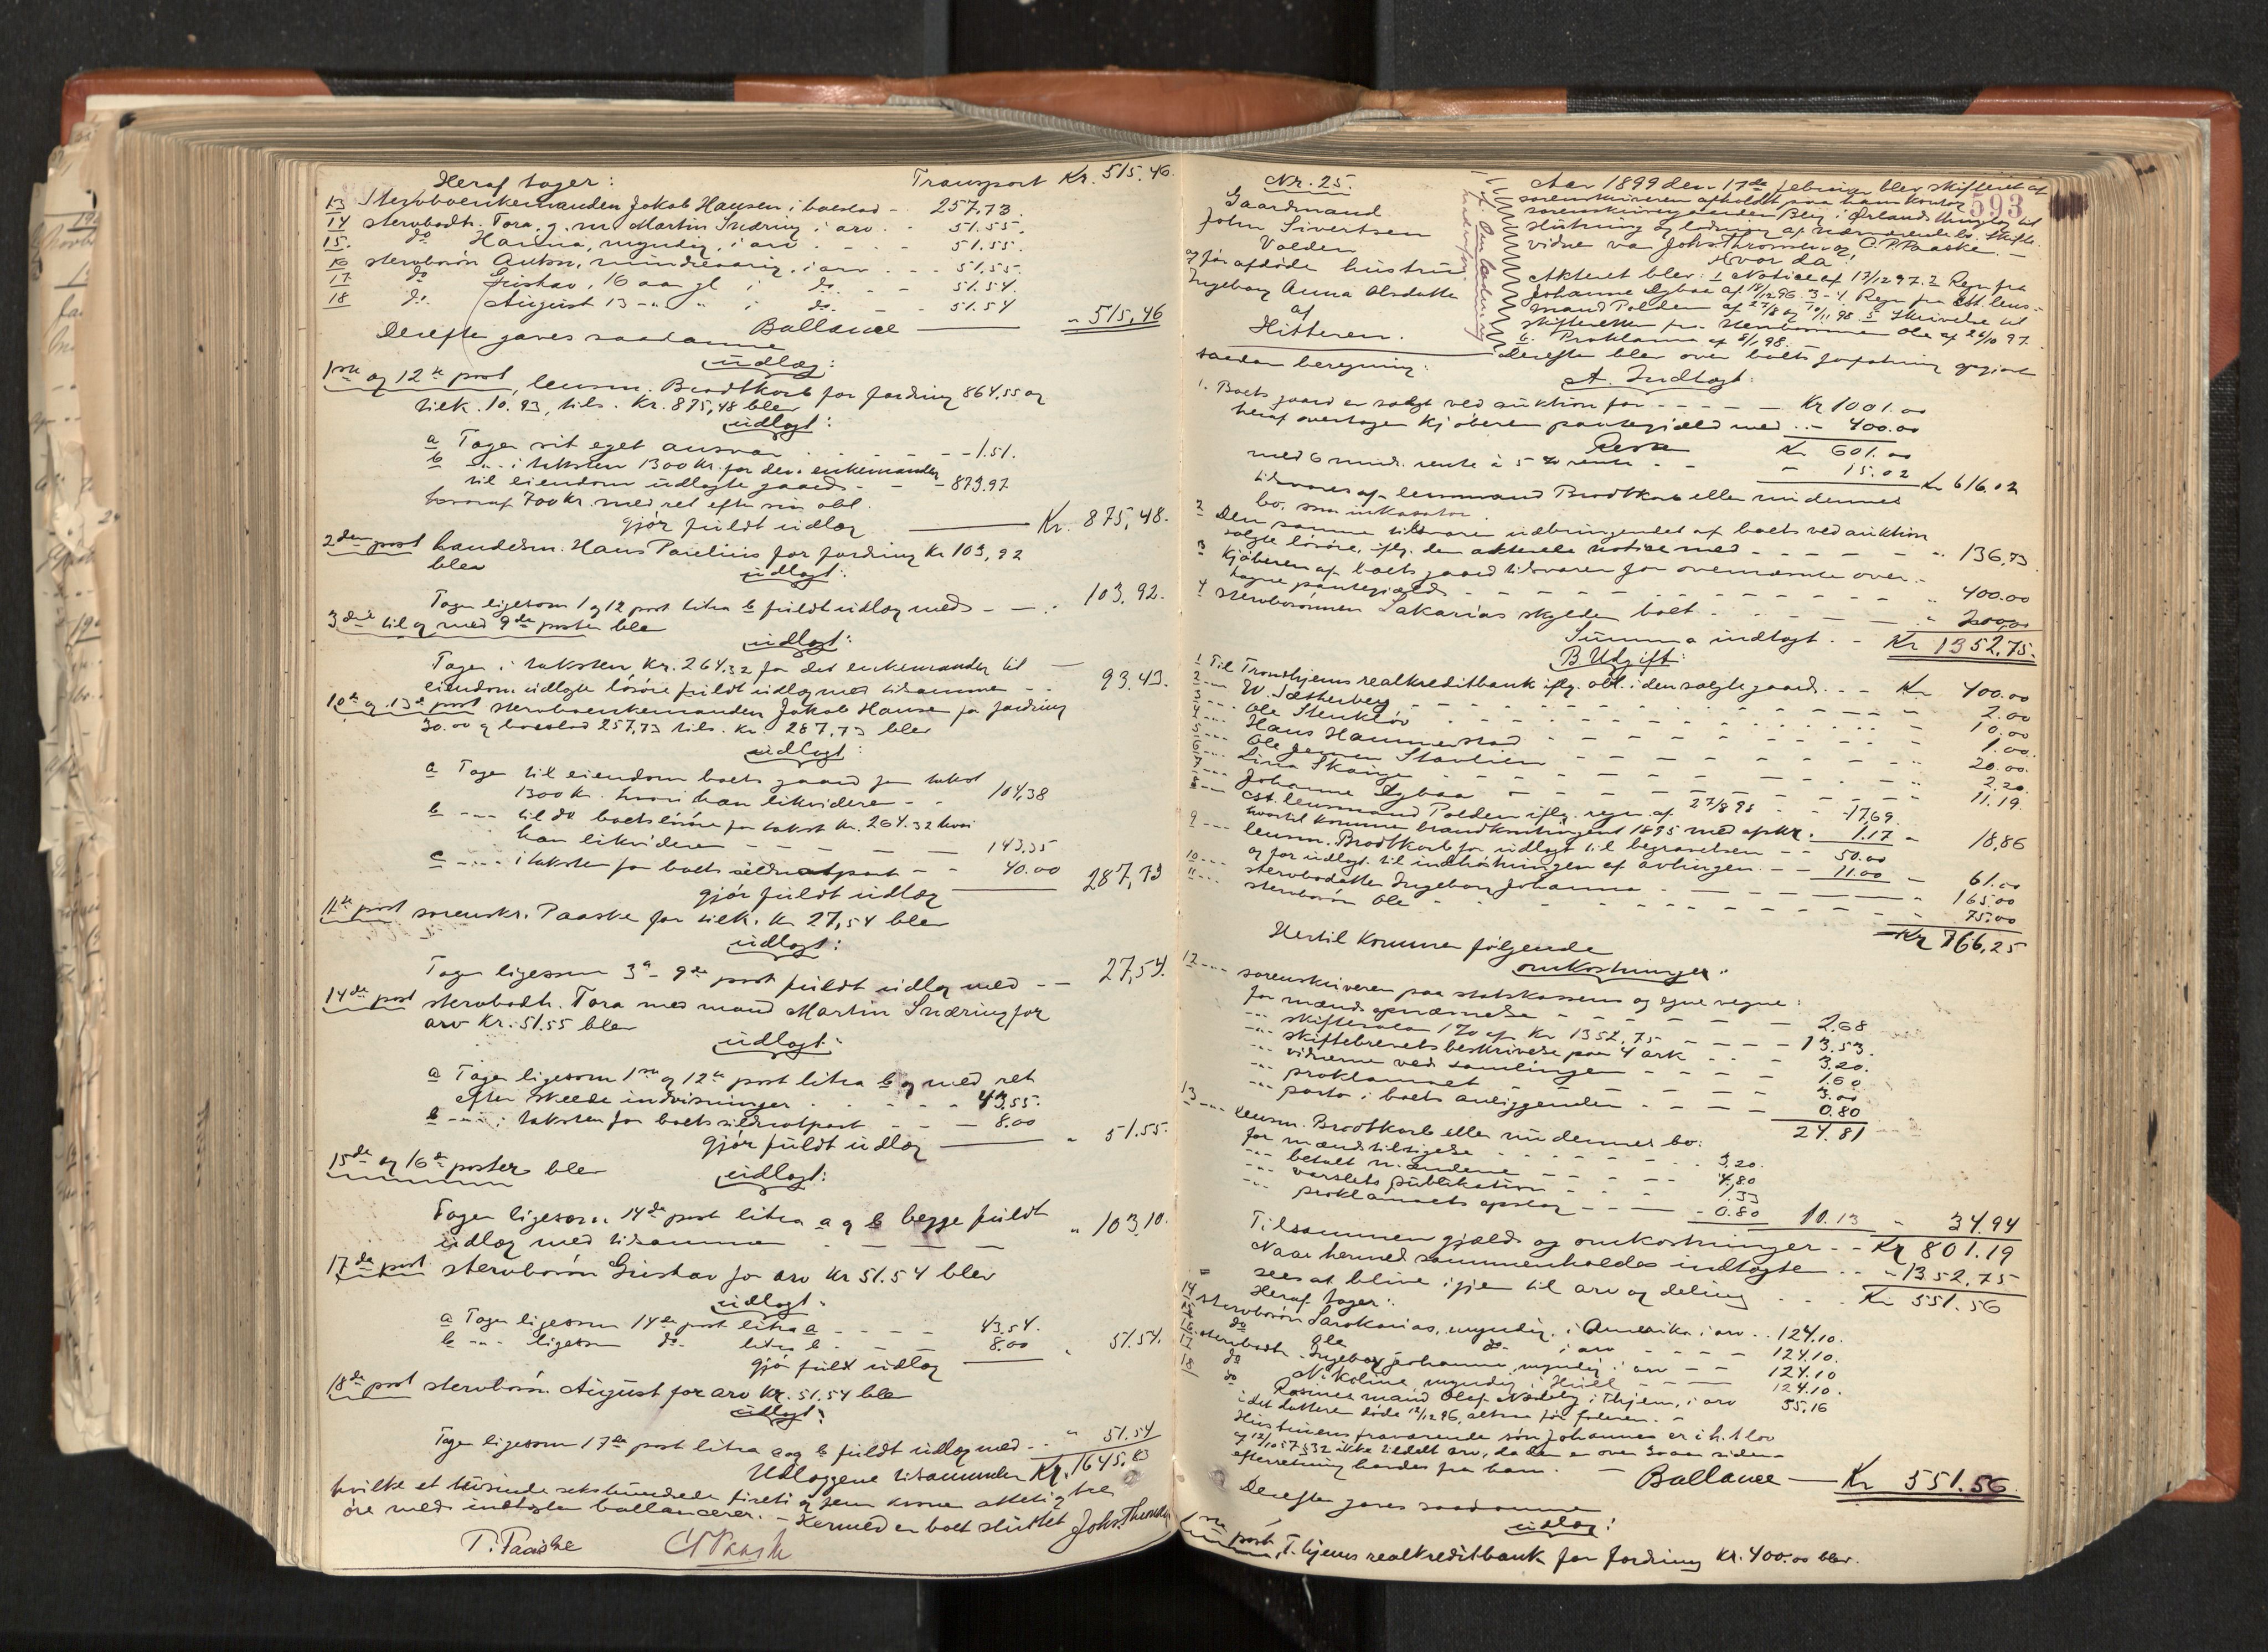 Heraf tager: Transport Kr. 515.46.
13 Stervboenkemanden Jakob Hansen i boeslod - 257,73.
14 stervbodtr. Tora, g. m. Martin Snæring i arv - 51.55.
15. do Hanna, myndig, i arv - - - 51.55.
16 stervbosøn Anton, mindreaarig, i arv - - - 51,55.
17 do Gustav, 16 aar gl i do - - 51.54.
18 do August 13 - " - " i do - - 51.54
Ballance — " 515,46
Derefter gaves saadanne
udlæg:
1ste og 12te post, lensm. Brodtkorb for fordring 864,55 og
silk. 10.93, tils. Kr. 875,48 blev
udlagt:
a Tager sit eget ansvar - - - - 1.51.
b -"- i taksten 1300 Kr. for den enkemanden
til eiendom udlagte gaard - - - 873.97
hvoraf 700 kr. med ret efter sin obl.
gjør fuldt udlæg — Kr. 875,48.
2den post handelsm. Hans Paulius for fordring Kr 103,92
blev
udlagt:
Tager ligesom 1 og 12 post litra b fuldt udlæg med - - 103.92.
3die til og med 9de poster blev
udlagt:
Tager i taksten Kr. 264.32 for det enkemanden til
eiendom udlagte løsøre fuldt udlæg med tilsammen - - 93.43.
10de og 13de post stervboenkemanden Jakob Hansen for fordring
30.00 og boeslod 257,73 tils. Kr. 287,73 blev
udlagt:
a Tager til eiendom boets gaard for takst
1300 Kr. hvori han likviderer - - 104,38
b -"- til do boets løsøre for takst Kr. 264.32 hvori
han likviderer - - - - 143.35
c -"- i taksten for boets - - 40.00
gjør fuldt udlæg — 287,73
11te post sorenskr. Paaske for silk. Kr 27,54 blev
udlagt:
Tager ligesom 3de - 9de post fuldt udlæg med - - 27,54.
14de post stervbodtr. Tora med mand Martin Snæring for
arv Kr. 51.55 blev
udlagt:
a Tager ligesom 1ste og 12te post litra b og med ret
efter skeede indvisninger - - - - 43,55.
b -"- i taksten for boets - - - 8.00
gjør fuldt udlæg — " 51.55.
15de og 16de poster blev
udlagt:
Tager ligesom 14de post litra a og b begge fuldt
udlæg med tilsammen - - - " 103,10.
17de post stervbosøn Gustav for arv Kr 51.54 blev
udlagt:
a Tager ligesom 14de post litra a - - - - 43,54.
b -"- ligesom do litra b - - - 8.00
gjør fuldt udlæg — " 51.54.
18de post stervbosøn August for arv Kr. 51.54 blev
udlagt:
Tager ligesom 17de post litra a og b fuldt udlæg med - - " 51.54
Udlæggene tilsammen Kr. 1645.83
hvilke et tusinde sekshundrede fireti og fem kroner ottetig tre
øre med indtægten ballancerer. - Hermed er boet sluttet Johs. Thronsen
T. Paaske CPPaaske
Nr. 25.
Gaardmand
John Sivertsen
Valden
og før afdøde hustru
Ingeborg Anna Olsdatter
af
Hitteren.
593
Aar 1899 den 17de februar blev skifteret af
sorenskriveren afholdt paa hans kontor
i Ørlands thinglag til
slutning og lodning af nærværende bo. Skifte-
vidner var Johs. Thronsen og C. P. Paaske. -
Hvor da!
Akteret blev: 1 Notice af 17/12 97. 2 Regn fra
Johanne Dybaa af 18/12 96. 3 - 4 Regn fra kst. lens-
mand Polden af 27/8 og 10/11 98. 5 Skrivelse til
skifteretten fra stervbosønnen Ole af 26/10 97.
6. Proklama af 8/1 98. -
Derefter blev over boets forfatning opgjort
saadan beregning:
A. Indtægt:
1. Boets gaard er solgt ved auktion for - - - - Kr 1001.00
heraf overtager kjøberen pantegjæld med - - " 400.00
Rest Kr 601.00
med 6 mnd. rente à 5 % rente - - " 15.02 Kr 616.02
tilsvares af lensmand Brodtkorb eller nu dennes
bo, som inkasator.
2 Den samme tilsvarer udbringendet af boets ved auktion
solgte løsøre, iflg. den akterede notice med - - - - " 136,73
3 Kjøberen af boets gaard tilsvarer for ovennævnte over-
tagne pantegjæld - - - - - - " 400.00
4 stervbosønnen Sakarias skylder boet - - - - " 200,00
Summa indtægt - - Kr 1352,75.
B Udgift:
1 Til Trondhjems realkreditbank iflg. obl. i den solgte gaard - - Kr 400.00
2 -"- W. Sætherberg - - - - - " 2.00
3 -"- Ole Stenkløv - - - - - 10.00
4 -"- Hans Hammerstad - - - - - " 1.00.
5 -"- Ole Jensen Stavlien - - - - " 20.00.
6 -"- Lina Skange - - - - - " 2.20.
7 -"- Johanne Dybaa - - - - - 11.19.
8 -"- cst. lensmand Polden iflg. regn. af 27/8 98 - - 17,69.
hvortil kommer brandkontingent 1895 med opkr. 1.17 - 18,86
9 -"- lensm. Brodtkorb for udlagt til begravelsen - - 50.00
og for udlagt til indhøstningen af avlingen - - 11.00 - 61.00
10 -"- stervbodatter Ingeborg Johanna - - - - 165.00
11 -"- stervbosøn Ole - - - - - - 75.00
Kr 766,25
Hertil kommer følgende
omkostninger:
12 -"- sorenskriveren paa statskassens og egne vegne:
for mænds opnævnelse - - - - 2.68
-"- skiftesalær 1 % af Kr 1352,75 - - - - 13.53.
-"- skiftebrevets beskrivelse paa 4 ark - - - 3.20.
-"- vidnerne ved samlingen - - - - 1.60
-"- proklamaet - - - - 3.00
-"- porto i boets anliggender - - - - 0.80
24.81
13 -"- lensm. Brodtkorb eller nu dennes bo:
for mænds tilsigelse - - - - 3,20.
-"- betalt mændene - - - - 4,80
-"- varslets publikation - - - 1.33
-"- proklamaets opslag - - - 0.80 10.13 " 34.94
Tilsammen gjæld og omkostninger - - Kr 801.19
Naar hermed sammenholdes indtægten - - " 1352.75
sees at blive igjen til arv og deling - - - Kr 551.56
Heraf tager:
14 stervbosøn Sarokarias, myndig, i Amerika i arv - - 124.10.
15 do Ole do i arv - - - 124.10.
16 stervbodtr. Ingeborg Johanna, myndig i arv - - 124.10
17 do Nikoline, myndig i Hull - - - 124.10.
18 do Rosines mand Olaf i Thjem, i arv 55,16
idet datteren døde 12/12 96, altsaa før faderen. -
Hustruens fraværende søn Johannes er i h. t. lov
af 12/10 57 § 32 ikke tildelt arv, da der er over siden
efterretning havdes fra ham. - Ballance — Kr 551.56
Derefter gaves saadanne
udlæg:
1ste post, T.hjems realkreditbank for fordring Kr. 400.00 blev.